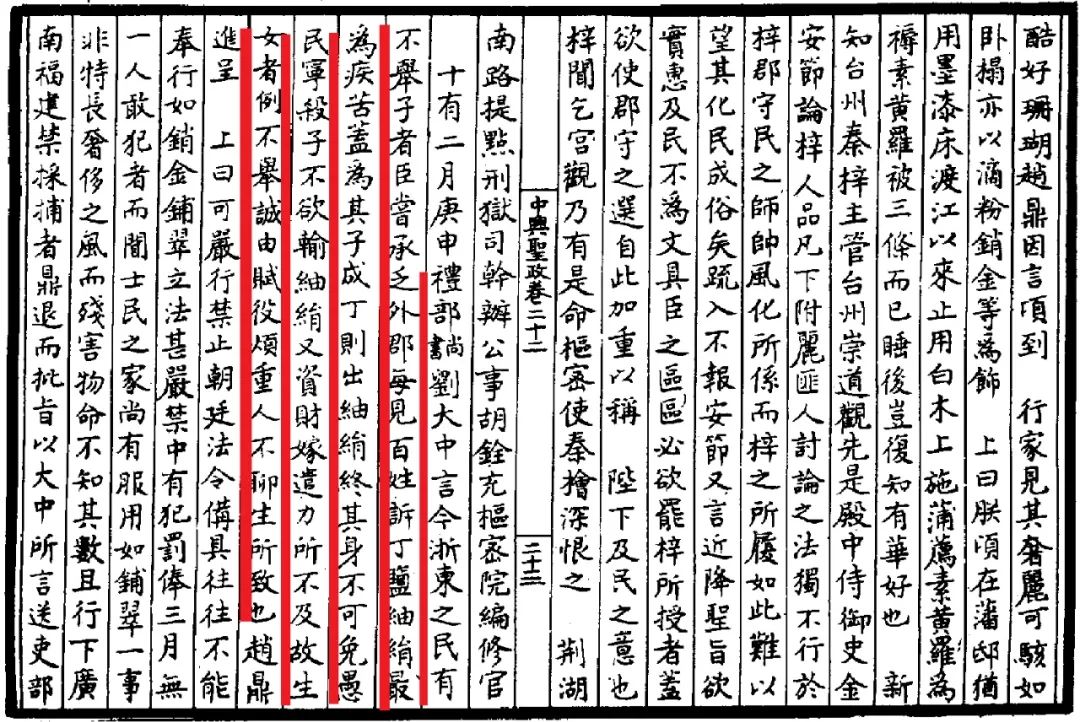 酷好珊瑚趙鼎因言頃到　行家見其奢麗可駭如
卧榻亦以滴粉銷金等為飾　上曰朕頃在潘邸猶
用墨漆床渡江以來止用白木上施蒲薦素黄羅為
褥素黄羅被三條而已睡後豈復知有華好也　新
知台州秦梓主管台州崇道觀先是殿中侍御史金
安節論梓人品凡下附麗匪人討論之法獨不行於
梓郡守民之師帥風化所係而梓之所履如此難以
望其化民成俗矣疏入不報安節又言近降聖旨欲
實惠及民不為文具臣之區區必欲罷梓所授者蓋
欲使郡守之選自此加重以稱　陛下及民之意也
梓聞乞宮觀乃有是命樞密使秦檜深恨之　荆湖
中興聖政卷二十二
二十三
南路提點刑獄司幹辦公事胡銓充樞密院編修官
十有二月庚申禮部尚書劉大中言今浙東之民有
不舉子者臣嘗承乏外郡每見百姓訴丁鹽紬絹最
為疾苦盖為其子成丁則出紬絹終其身不可免愚
民寧殺子不欲輸紬絹又資財嫁遣力所不及故生
女者例不舉誠由賦役煩重人不聊生所致也趙鼎
進呈　上曰可嚴行禁止朝廷法令備具往往不能
奉行如銷金鋪翠立法甚嚴禁中有犯罰俸三月無
一人敢犯者而聞士民之家尚有服用如鋪翠一事
非特長奢侈之風而殘害物命不知其數且行下廣
南福建禁採捕者鼎退而批旨以大中所言送吏部